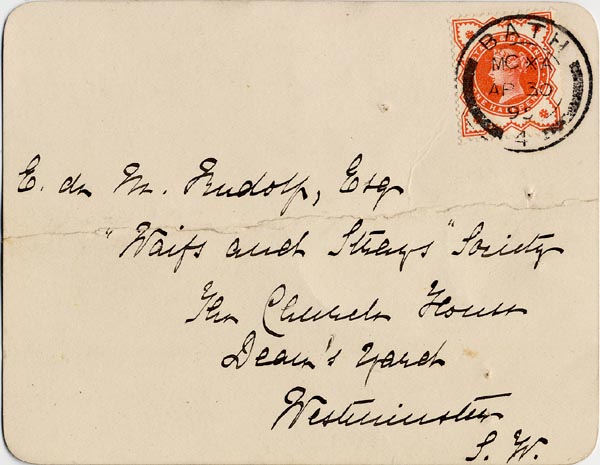 BATH
MC XA
AP 30
95
4
E. de M. Rudolf, Esq
"Waifs and Strays" Society
The Church House
Dean's Yard
Westminster
S. W.